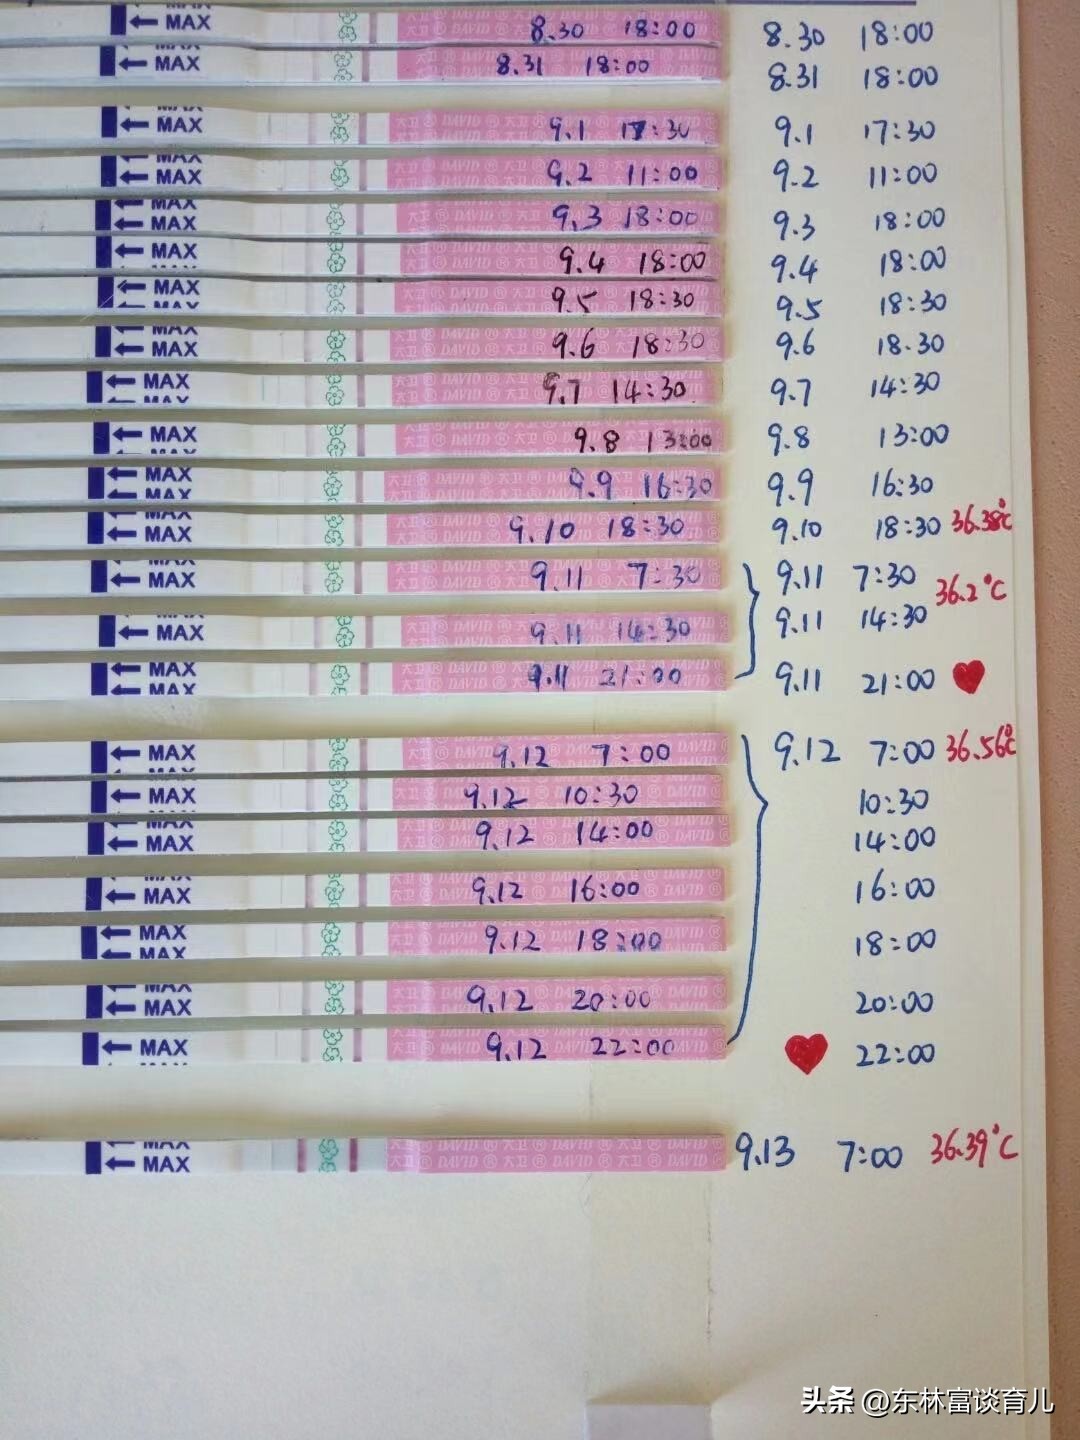 MAX 8.30 18:00 8.30 18:00
MAX 8.31 18:00 8.31 18:00
MAX 大卫 ® DAVID ® 9.1 17:30 9.1 17:30
MAX 9.2 11:00 9.2 11:00
MAX 9.3 18:00 9.3 18:00
MAX 9.4 18:00 9.4 18:00
MAX 9.5 18:30 9.5 18:30
MAX 9.6 18:30 9.6 18.30
MAX 9.7 14:30 9.7 14:30
MAX 9.8 13:00 9.8 13:00
MAX 9.9 16:30 9.9 16:30
MAX 9.10 18:30 9.10 18:30 36.38℃
MAX 9.11 7:30 9.11 7:30 36.2℃
MAX 9.11 14:30 9.11 14:30
MAX 9.11 21:00 9.11 21:00
MAX 9.12 7:00 9.12 7:00 36.56℃
MAX 9.12 10:30 10:30
MAX 9.12 14:00 14:00
MAX 9.12 16:00 16:00
MAX 9.12 18:00 18:00
MAX 9.12 20:00 20:00
MAX 9.12 22:00 22:00
MAX 大卫 ® DAVID ® 大卫 ® DAVID ® 大卫 ® DAVID 9.13 7:00 36.39℃
头条 @东林富谈育儿